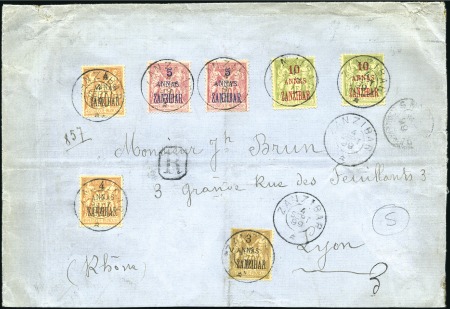 5 ANNAS ZANZIBAR
5 ANNAS ZANZIBAR
10 ANNAS ZANZIBAR
10 ANNAS ZANZIBAR
ZANZIBAR
857
Monsieur Jh Brun
R
3 Grande Rue des Feuillants 3
4 ANNAS ZANZIBAR
ZANZIBAR
S
Lyon
3 ANNAS ZANZIBAR
(Rhône)